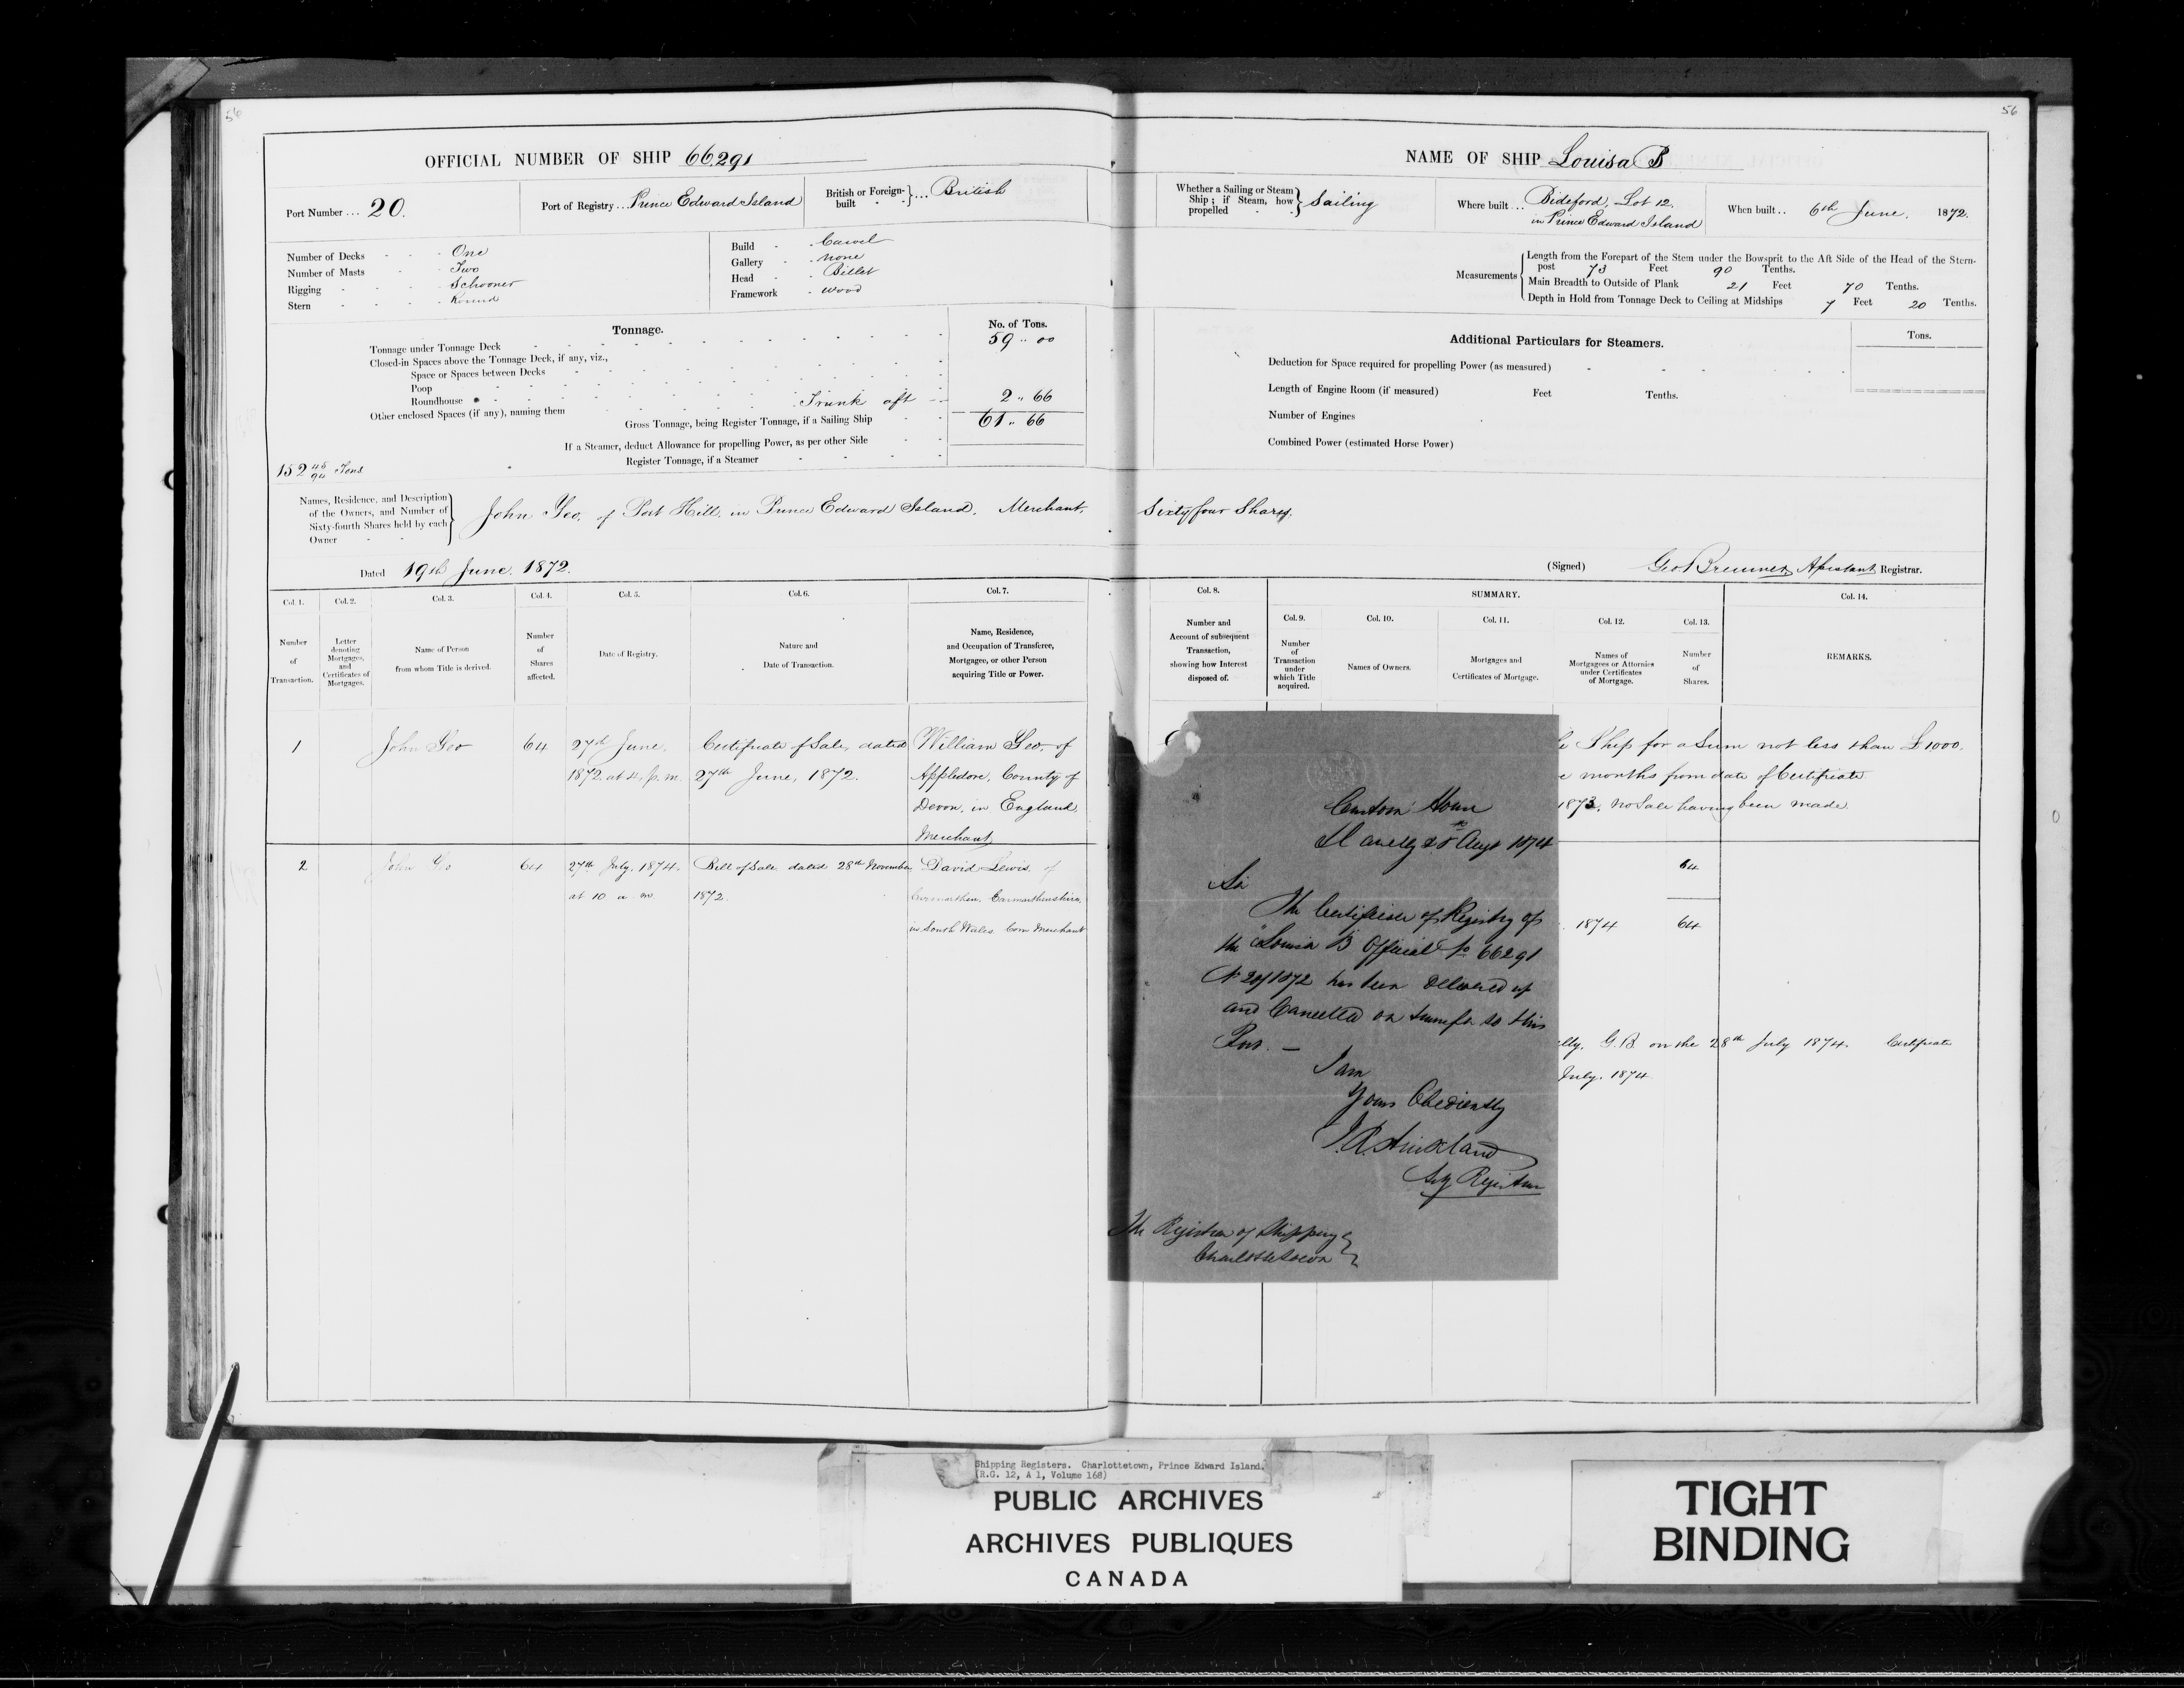 56
56
OFFICIAL NUMBER OF SHIP 66,291
Port Number ... 20.
Port of Registry ... Prince Edward Island
British or Foreign-built } ... British
Number of Decks - - - One
Number of Masts - - - Two
Rigging - - - - Schooner
Stern - - - - Round
Build - - Carvel
Gallery - - None
Head - - Billet
Framework - wood
Tonnage.
No. of Tons.
Tonnage under Tonnage Deck 59 .. 00
Closed-in Spaces above the Tonnage Deck, if any, viz.,
Space or Spaces between Decks
Poop
Roundhouse
Other enclosed Spaces (if any), naming them Trunk aft 2 .. 66
Gross Tonnage, being Register Tonnage, if a Sailing Ship 61 .. 66
If a Steamer, deduct Allowance for propelling Power, as per other Side
Register Tonnage, if a Steamer
152 45/94 Tons
NAME OF SHIP Louisa B
Whether a Sailing or Steam Ship; if Steam, how propelled } Sailing
Where built ... Bideford, Lot 12.
in Prince Edward Island
When built .. 6th June. 1872.
Measurements
Length from the Forepart of the Stem under the Bowsprit to the Aft Side of the Head of the Stern-
post 73 Feet 90 Tenths.
Main Breadth to Outside of Plank 21 Feet 70 Tenths.
Depth in Hold from Tonnage Deck to Ceiling at Midships 7 Feet 20 Tenths.
Additional Particulars for Steamers.
Tons.
Deduction for Space required for propelling Power (as measured)
Length of Engine Room (if measured) Feet Tenths.
Number of Engines
Combined Power (estimated Horse Power)
Names, Residence, and Description
of the Owners, and Number of
Sixty-fourth Shares held by each
Owner
John Yeo, of Port Hill, in Prince Edward Island. Merchant, Sixty four Shares.
Dated 19th June. 1872.
(Signed) Geo Bremner Assistant Registrar.
Col. 1. Col. 2. Col. 3. Col. 4. Col. 5. Col. 6. Col. 7.
Number of Transaction.
Letter denoting Mortgages, and Certificates of Mortgages.
Name of Person from whom Title is derived.
Number of Shares affected.
Date of Registry.
Nature and Date of Transaction.
Name, Residence, and Occupation of Transferee, Mortgagee, or other Person acquiring Title or Power.
Col. 8.
SUMMARY.
Col. 14.
Col. 9. Col. 10. Col. 11. Col. 12. Col. 13.
Number and Account of subsequent Transaction, showing how Interest disposed of.
Number of Transaction under which Title acquired.
Names of Owners.
Mortgages and Certificates of Mortgage.
Names of Mortgagees or Attornies under Certificates of Mortgage.
Number of Shares.
REMARKS.
1 John Yeo 64 27th June, Certificate of Sale, dated William Yeo, of
1872, at 4, p.m. 27th June, 1872. Appledore, County of
Devon, in England,
Merchant
2 John Yeo 64 27th July, 1874. Bill of Sale dated 28th November David Lewis, of
at 10 a.m 1872. Carmarthen, Carmarthenshire,
in South Wales Corn Merchant
Ship for a Sum not less than £1000.
months from date of Certificate
1873, no Sale having been made
64
1874 64
lly, G.B. on the 28th July 1874. Certificate
July. 1874
Custom House
Llanelly 25th Augt 1874
Sir
The Certificate of Registry of
the "Louisa B" Official No 66291
No 20/1872 has been delivered up
and Cancelled on transfer to this
Port. —
I am
Yours Obediently
Registrar
The Registrar of Shipping
Charlottetown
Shipping Registers. Charlottetown, Prince Edward Island.
(R.G. 12, A 1, Volume 168)
PUBLIC ARCHIVES
ARCHIVES PUBLIQUES
CANADA
TIGHT
BINDING